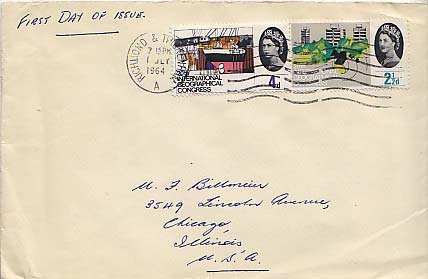 FIRST DAY OF ISSUE.
RICHMOND & TW
7 15 PM
1 JLY
1964
A
20TH INTERNATIONAL
GEOGRAPHICAL
CONGRESS
4d
2½d
M. F. Billmeier
3549 Lincoln Avenue,
Chicago,
Illinois
U.S.A.